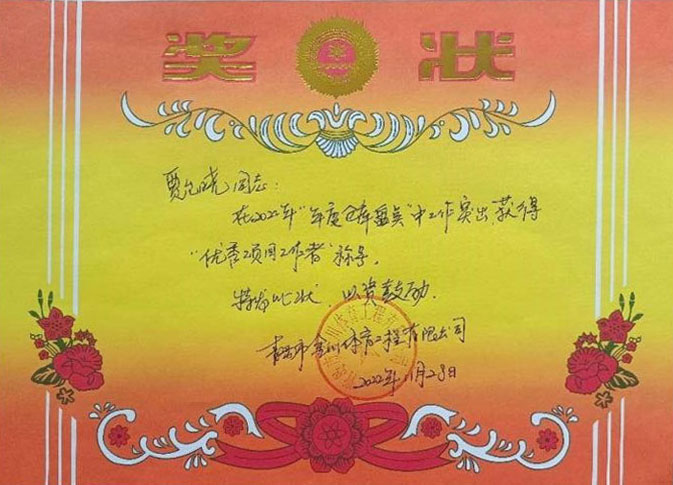 奖 状
贾允晓同志：
在2022年"年度仓库盘点"中工作突出，获得
"优秀项目工作者"称号。
特发此状，以资鼓励。
市 川体育工程有限公司
2022年11月28日